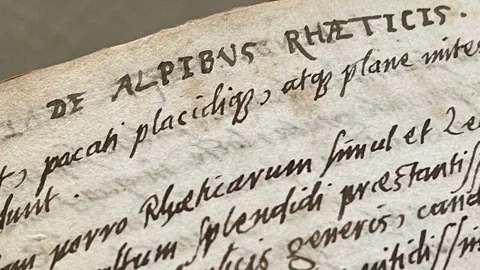 DE ALPIBVS RHÆTICIS.
t, pacati placidiq, atq plane mites
funt.
m porro Rhæticarum simul et Le
ltum splendidi præstantiss
generis, cand
nitidissim